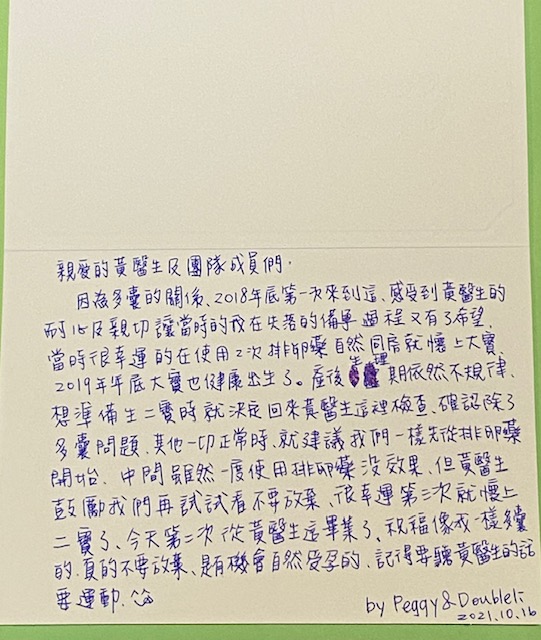 親愛的黃醫生及團隊成員們.
因為多囊的關係、2018年底第一次來到這、感受到黃醫生的
耐心及親切讓當時的我在失落的備孕過程又有了希望.
當時很幸運的在使用2次排卵藥自然同房就懷上大寶.
2019年年底大寶也健康出生了。產後生理期依然不規律.
想準備生二寶時就決定回來黃醫生這裡檢查、確認除了
多囊問題、其他一切正常時、就建議我們一樣先從排卵藥
開始. 中間雖然一度使用排卵藥沒效果、但黃醫生
鼓勵我們再試試看不要放棄、很幸運第三次就懷上
二寶了、今天第二次從黃醫生這畢業了、祝福像我一樣多囊
的.真的不要放棄、是有機會自然受孕的、記得要聽黃醫生的話
要運動.
by Peggy & Doubleli
2021.10.16